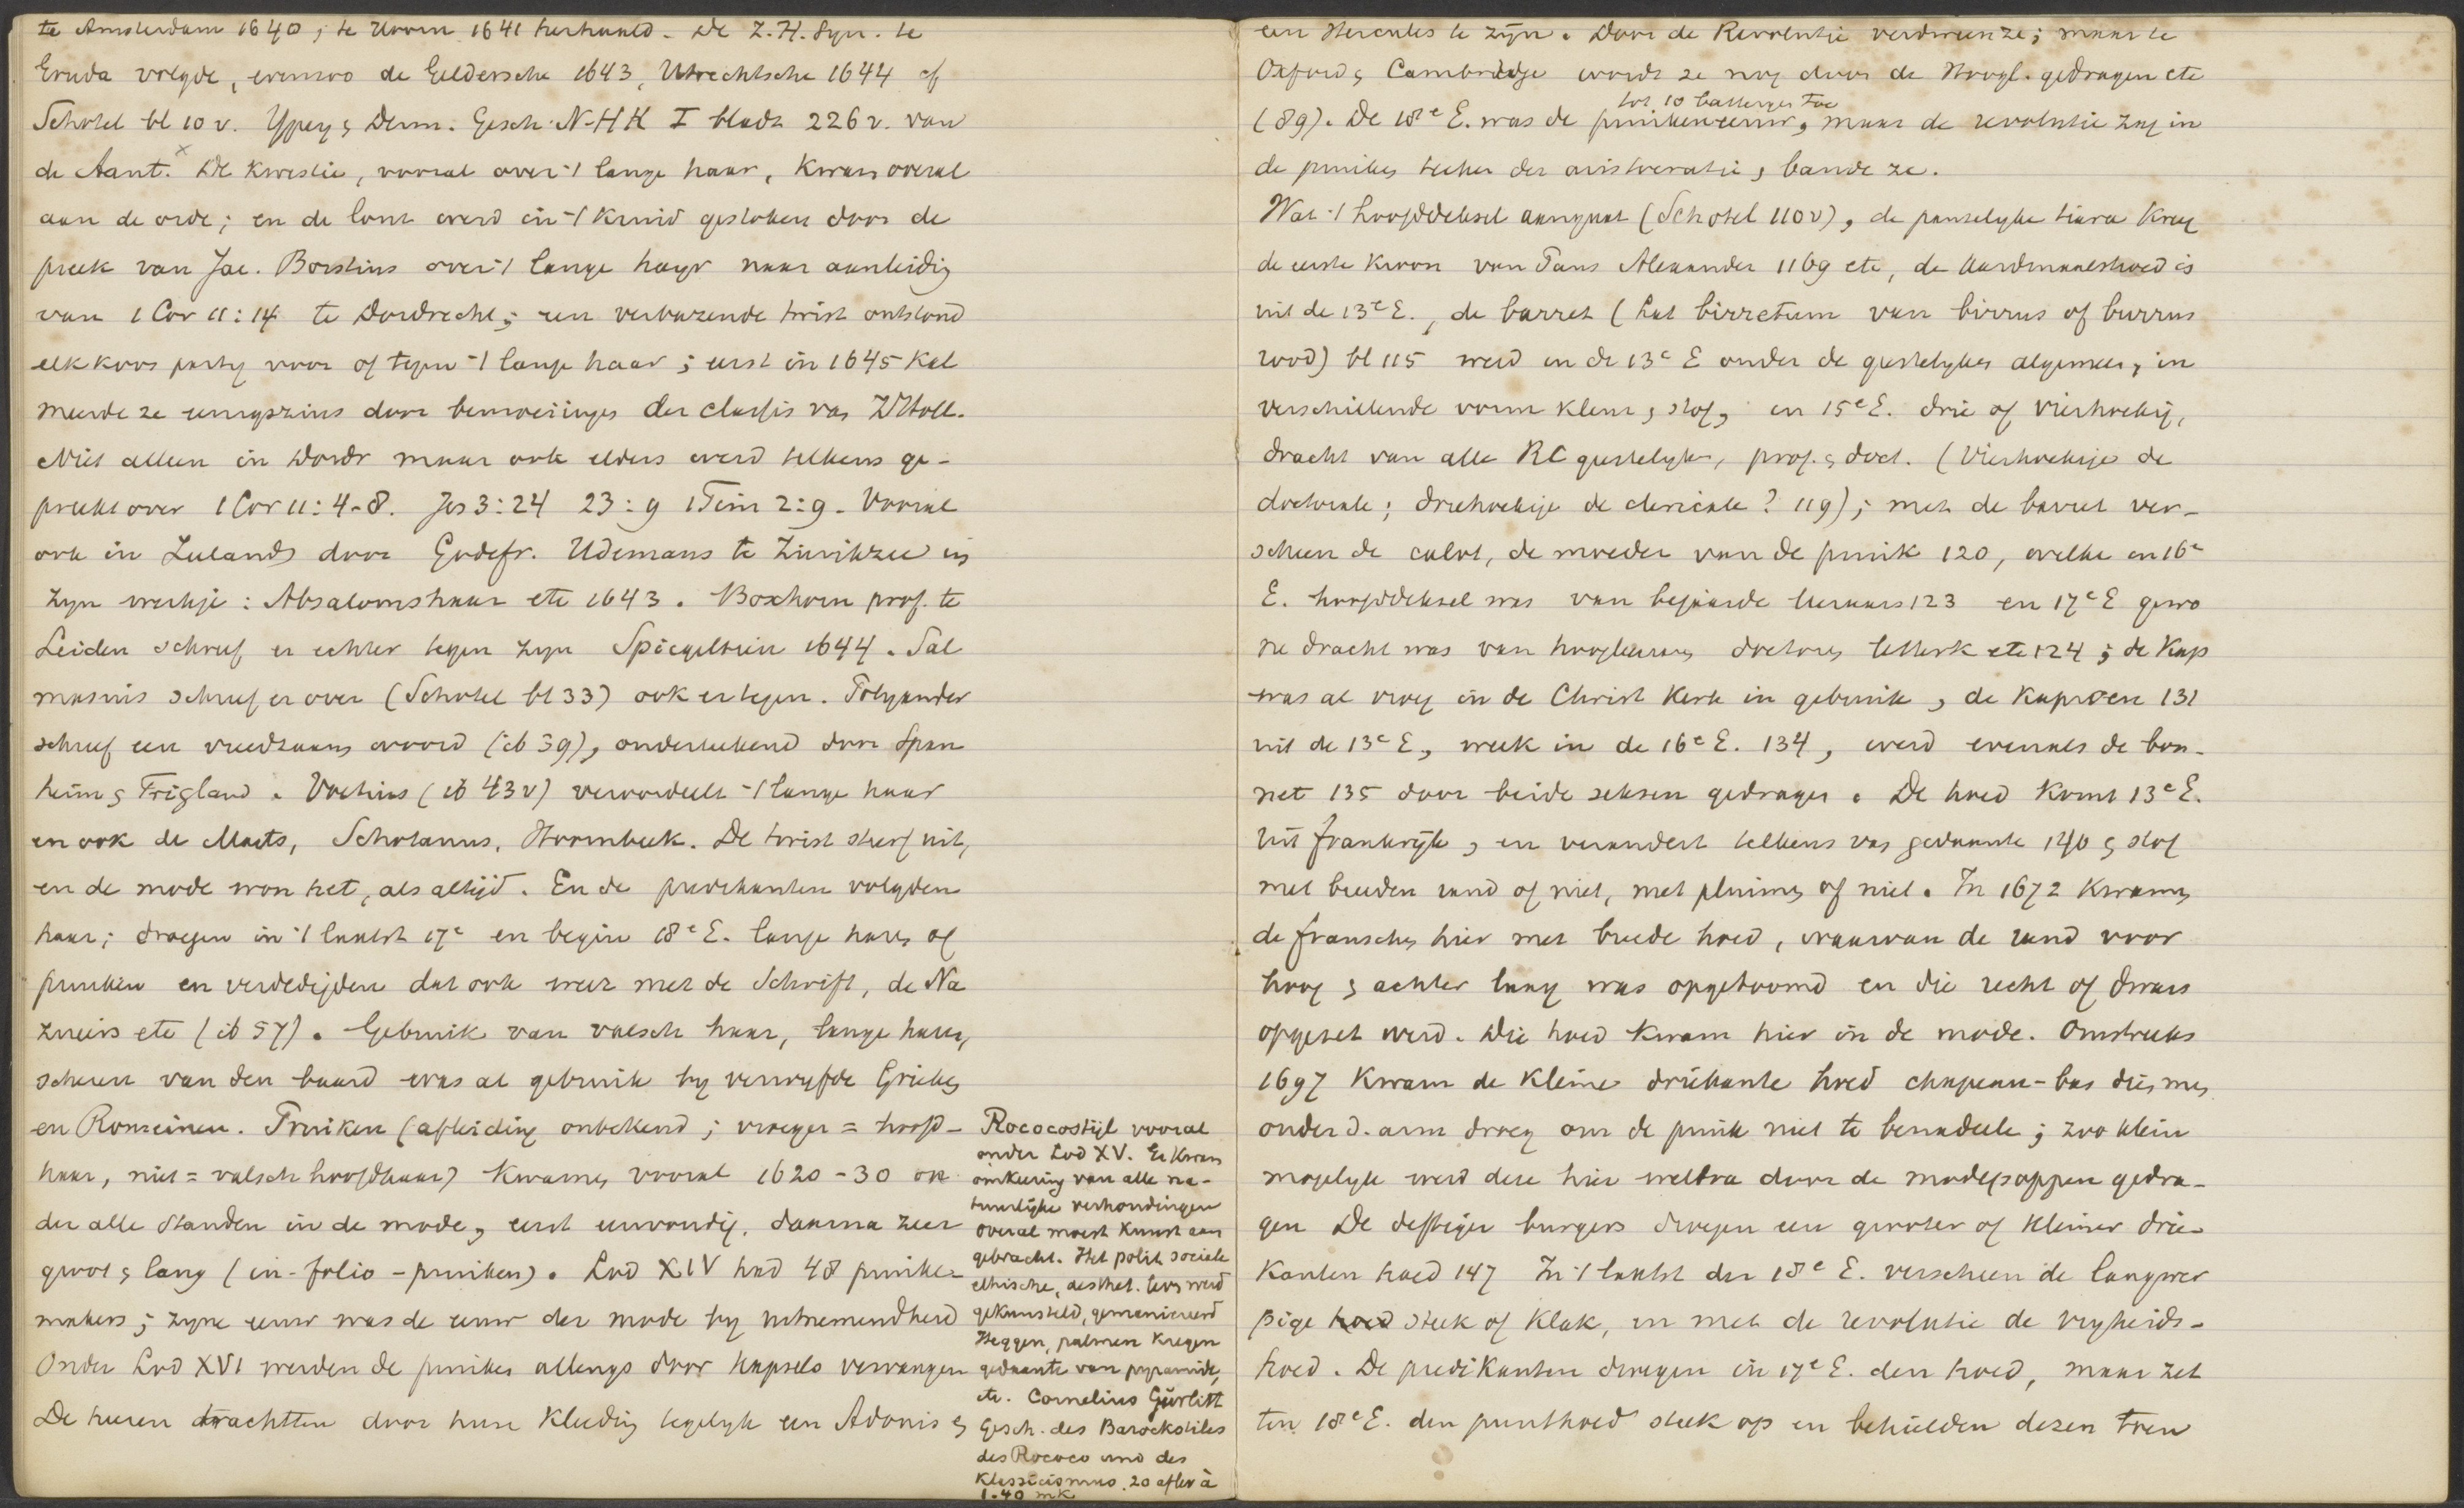 te Amsterdam 1640; te Hoorn 1641 herhaald. De Z.H. Syn. te
Gouda volgde, evenzoo de Geldersche 1643, Utrechtsche 1644 cf
Schotel bl 10 v. Ypey & Derm. Gesch. N-H K I bladz 226 v. van
de Aant. x De kwestie, vooral over 't lange haar, kwam overal
aan de orde; en de lont werd in 't kruid gestoken door de
preek van Jac. Borstius over 't lange hayr naar aanleidig
van 1 Cor 11:14 te Dordrecht; een verbazende twist ontstond
elk koos party voor of tegen 't lange haar; eerst in 1645 kal
meerde ze eenigszins door bemoeiinges der classis van ZHoll.
Niet alleen in Dordr maar ook elders werd telkens ge-
preekt over 1 Cor 11:4-8. Jes 3:24 23:9 1 Tim 2:9. Vooral
ook in Zeeland door Godefr. Udemans te Zierikzee in
zyn werkje: Absalomshaar etc 1643. Boxhorn prof. te
Leiden schreef er echter tegen zyn Spiegeltein 1644. Sal
masius schreef er over (Schotel bl 33) ook ertegen. Polyander
schreef een vreedzaam woord (ib 39), onderteekend door Span
heim & Trigland. Voetius (ib 43v) veroordeelt 't lange haar
en ook de Maets, Schotanus, Hoornbeek. De twist stierf uit,
en de mode won het, als altijd. En de predikanten volgden
haar; droegen in 't laatst 17e en begin 18e E. lange haren of
pruiken en verdedigden dat ook weer met de Schrift, de Na
zireërs etc (ib 57). Gebruik van valsch haar, lange haren,
scheren van den baard was al gebruik by verwyfde Grieken
en Romeinen. Pruiken (afleiding onbekend; vroeger = hoofd-
haar, niet = valsch hoofdhaar) kwamen vooral 1620-30 on
der alle standen in de mode, eerst eenvoudig, daarna zeer
groot & lang (in-folio-pruiken). Lod XIV had 48 pruike-
makers; zyne eeuw was de eeuw der mode by uitnemendheid
Onder Lod XVI werden de pruiken allengs door kapsels vervangen
De heeren trachtten door hun kleeding tegelyk een Adonis &
Rococostijl vooral
onder Lod XV. Er kwam
omkeering van alle na-
tuurlijke verhoudingen
overal moest kunst aan
gebracht. Het polit sociale
ethische, aesthet. leven werd
gekunsteld, gemaniereerd
Heggen, palmen kregen
gedaante van pyramide,
etc. Cornelius Gurlitt
Gesch. des Barockstiles
des Rococo und des
Klassicismus. 20 aflev à
1.40 mk
een Hercules te zijn. Door de Revolutie verdween ze; maar te
Oxford & Cambridge wordt ze nog door de Hoogl. gedragen etc
tot 10 toe
(89). De 18e E. was de pruikeneeuw, maar de revolutie zag in
de pruiken teeken der aristocratie, & bande ze.
Wat 't hoofddeksel aangaat (Schotel 110v), de pauselyke tiara kreeg
de eerste kroon van Paus Alexander 1169 etc, de kardinaalshoed is
uit de 13e E., de barret (Lat birretum van birrus of burrus
rood) bl 115 werd in de 13e E onder de geestelykes algemeen, in
verschillende vorm kleur & stof, en 15e E. drie of vierhoekig,
dracht van alle RC geestelyken, prof. & doct. (Vierhoekige de
doctorale; driehoekige de clericale? 119); met de barret ver-
scheen de calot, de moeder van de pruik 120, welke en 16e
E. hoofddeksel was van bejaarde leeraars 123 en 17e E gewo
ne dracht was van hoogleeraars doctores letterk etc 124; de kap
was al vroeg in de Christ Kerk in gebruik, de kaproen 131
uit de 13e E, week in de 16e E. 134, werd evenals de bon-
net 135 door beide seksen gedragen. De hoed komt 13e E.
uit Frankrijk, en verandert telkens van gedaante 140 & stof
met breeden rand of niet, met pluimen of niet. In 1672 kwamen
de Franschen hier met breede hoed, waarvan de rand voor
hoog & achter laag was opgetoomd en die recht of dwars
opgezet werd. Die hoed kwam hier in de mode. Omstreeks
1697 kwam de kleine driekante hoed chapeau-bas dien men
onder d. arm droeg om de pruik niet te benadeele; zoo klein
mogelyk werd deze hier weldra door de modepoppen gedra-
gen De deftiger burgers droegen een grooter of kleiner drie-
kanten hoed 147 In 't laatst der 18e E. verscheen de langwer
pige hoed steek of klak, en met de revolutie de vryheids-
hoed. De predikanten droegen in 17e E. den hoed, maar zet
ten 18e E. den punthoed steek op en behielden dezen trou